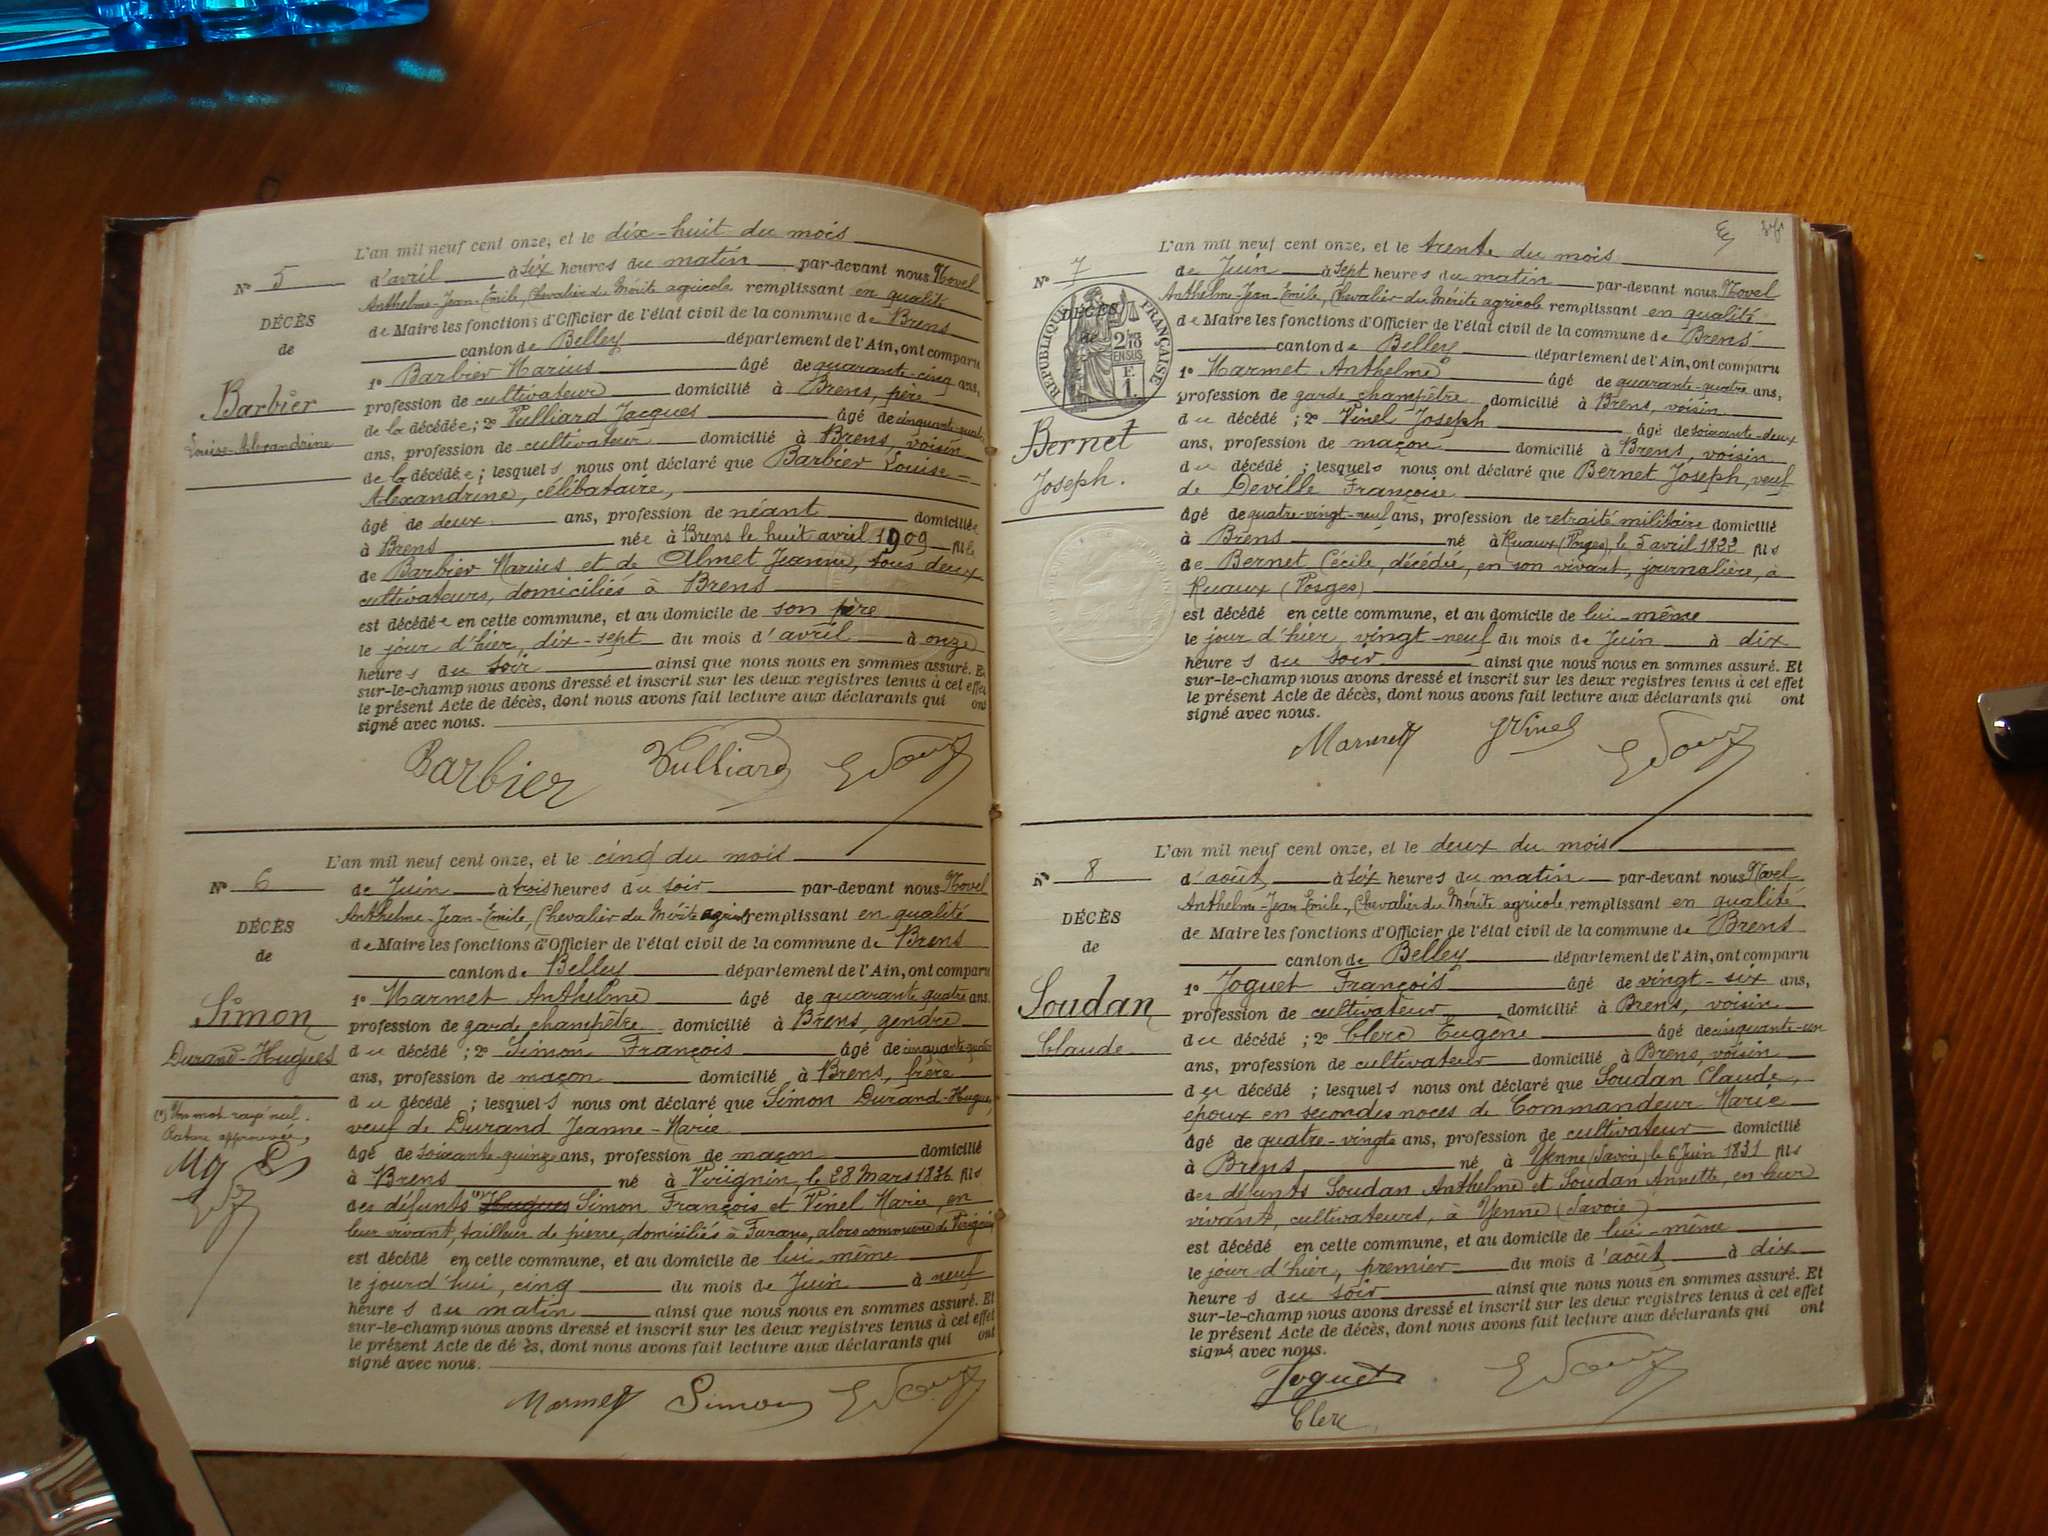 L'an mil neuf cent onze, et le dix-huit du mois
N° 5 d'avril à six heures du matin par-devant nous Novel
Anthelme-Jean-Emile, Chevalier du Mérite agricole remplissant en qualité
DÉCÈS
de Maire les fonctions d'Officier de l'état civil de la commune de Brens
de
canton de Belley département de l'Ain, ont comparu
1° Barbier Marius âgé de quarante-cinq ans,
Barbier
profession de cultivateur domicilié à Brens, père
de la décédée ; 2° Vulliard Jacques âgé de cinquante-quatre
Louise-Alexandrine
ans, profession de cultivateur domicilié à Brens, voisin
de la décédée ; lesquels nous ont déclaré que Barbier Louise=
Alexandrine, célibataire,
âgé de deux ans, profession de néant domiciliée
à Brens née à Brens le huit avril 1909 fille
de Barbier Marius et de Almet Jeanne, tous deux
cultivateurs, domiciliés à Brens
est décédée en cette commune, et au domicile de son père
le jour d'hier, dix-sept du mois d'avril à onze
heures du soir ainsi que nous nous en sommes assuré. Et
sur-le-champ nous avons dressé et inscrit sur les deux registres tenus à cet effet
le présent Acte de décès, dont nous avons fait lecture aux déclarants qui ont
signé avec nous.
Barbier Vulliard
L'an mil neuf cent onze, et le cinq du mois
N° 6 de Juin à trois heures du soir par-devant nous Novel
Anthelme-Jean-Emile, Chevalier du Mérite agricole remplissant en qualité
DÉCÈS
de Maire les fonctions d'Officier de l'état civil de la commune de Brens
de
canton de Belley département de l'Ain, ont comparu
1° Marmet Anthelme âgé de quarante quatre ans,
Simon
profession de garde champêtre domicilié à Brens, gendre
Durand-Hugues
du décédé ; 2° Simon François âgé de cinquante quatre
ans, profession de maçon domicilié à Brens, frère
du décédé ; lesquels nous ont déclaré que Simon Durand-Hugues,
(1) Un mot rayé nul.
veuf de Durand Jeanne-Marie
Rature approuvée,
âgé de soixante-quinze ans, profession de maçon domicilié
à Brens né à Virignin, le 28 Mars 1836 fils
des défunts (1) Hugues Simon François et Vinel Marie, en
leur vivant, tailleur de pierre, domiciliés à Furans, alors commune de Virignin
est décédé en cette commune, et au domicile de lui-même
le jourd'hui, cinq du mois de Juin à neuf
heures du matin ainsi que nous nous en sommes assuré. Et
sur-le-champ nous avons dressé et inscrit sur les deux registres tenus à cet effet
le présent Acte de décès, dont nous avons fait lecture aux déclarants qui ont
signé avec nous.
Marmet Simon
L'an mil neuf cent onze, et le trente du mois
N° 7 de Juin à sept heures du matin par-devant nous Novel
Anthelme-Jean-Emile, Chevalier du Mérite agricole remplissant en qualité
DÉCÈS
de Maire les fonctions d'Officier de l'état civil de la commune de Brens
de
RÉPUBLIQUE FRANÇAISE
canton de Belley département de l'Ain, ont comparu
1° Marmet Anthelme âgé de quarante-quatre ans,
profession de garde champêtre domicilié à Brens, voisin
du décédé ; 2° Vinel Joseph âgé de soixante-deux
Bernet
ans, profession de maçon domicilié à Brens, voisin
Joseph.
du décédé ; lesquels nous ont déclaré que Bernet Joseph, veuf
de Deville Françoise
âgé de quatre-vingt-neuf ans, profession de retraité militaire domicilié
à Brens né à Ruaux (Vosges), le 5 avril 1822 fils
de Bernet Cécile, décédée, en son vivant, journalière, à
Ruaux (Vosges)
est décédé en cette commune, et au domicile de lui-même
le jour d'hier, vingt-neuf du mois de Juin à dix
heures du soir ainsi que nous nous en sommes assuré. Et
sur-le-champ nous avons dressé et inscrit sur les deux registres tenus à cet effet
le présent Acte de décès, dont nous avons fait lecture aux déclarants qui ont
signé avec nous.
Marmet JVinel
L'an mil neuf cent onze, et le deux du mois
N° 8 d'août à six heures du matin par-devant nous Novel
Anthelme-Jean-Emile, Chevalier du Mérite agricole remplissant en qualité
DÉCÈS
de Maire les fonctions d'Officier de l'état civil de la commune de Brens
de
canton de Belley département de l'Ain, ont comparu
1° Joguet François âgé de vingt-six ans,
Soudan
profession de cultivateur domicilié à Brens, voisin
Claude
du décédé ; 2° Clerc Eugène âgé de cinquante-un
ans, profession de cultivateur domicilié à Brens, voisin
du décédé ; lesquels nous ont déclaré que Soudan Claude,
époux en secondes noces de Commandeur Marie
âgé de quatre-vingts ans, profession de cultivateur domicilié
à Brens né à Yenne (Savoie) le 6 juin 1831 fils
des défunts Soudan Anthelme et Soudan Annette, en leur
vivant, cultivateurs, à Yenne (Savoie)
est décédé en cette commune, et au domicile de lui-même
le jour d'hier, premier du mois d'août à dix
heures du soir ainsi que nous nous en sommes assuré. Et
sur-le-champ nous avons dressé et inscrit sur les deux registres tenus à cet effet
le présent Acte de décès, dont nous avons fait lecture aux déclarants qui ont
signé avec nous.
Joguet
Clerc